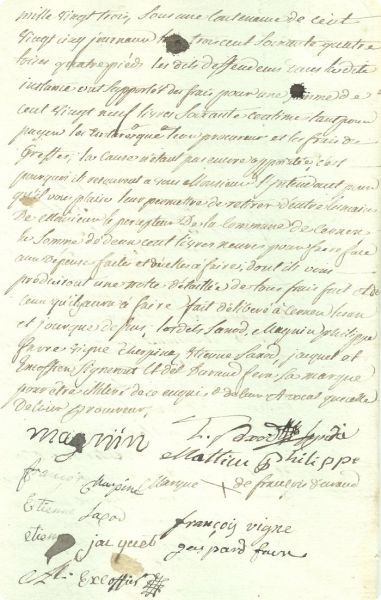 mille vingt trois, sous une contenance de cent
vingt cinq journaux trois cent soixante quatre
toises quatre pieds les dits deffendeurs dans la dite
instance ont supporté des frais pour une somme de
cent vingt neuf livres soixante centime tant pour
payer les que leur procureur et les frais de
Greffe; la cause n'étant pas encore appointée, c'est
pourquoi il recourent a vous Monsieur l'intendant pour
qu'il vous plaise leur permettre de retirer d'entre les mains
De Monsieur le percepteur De la commune de
la Somme de deux cent livres neuves pour faire face
aux dépense faite et a faire, dont ils vous
produiront une notte détaillée de tous frais fait et de
ceux qu'il y aura à faire fait délibéré à
et jour que de plus, les dits Sapod, Magnin, philippe
favre vigne Etienne Sapod, jacquet et
ont Signé et ledit Duraud fait sa marque
pour être de ce enquis et de leur avocat que celle
De leur procureur.
magnin Sapod
Mattieu philippe
françois marque de françois
Etienne Sapod françois vigne
etienne jacquet gaspard favre